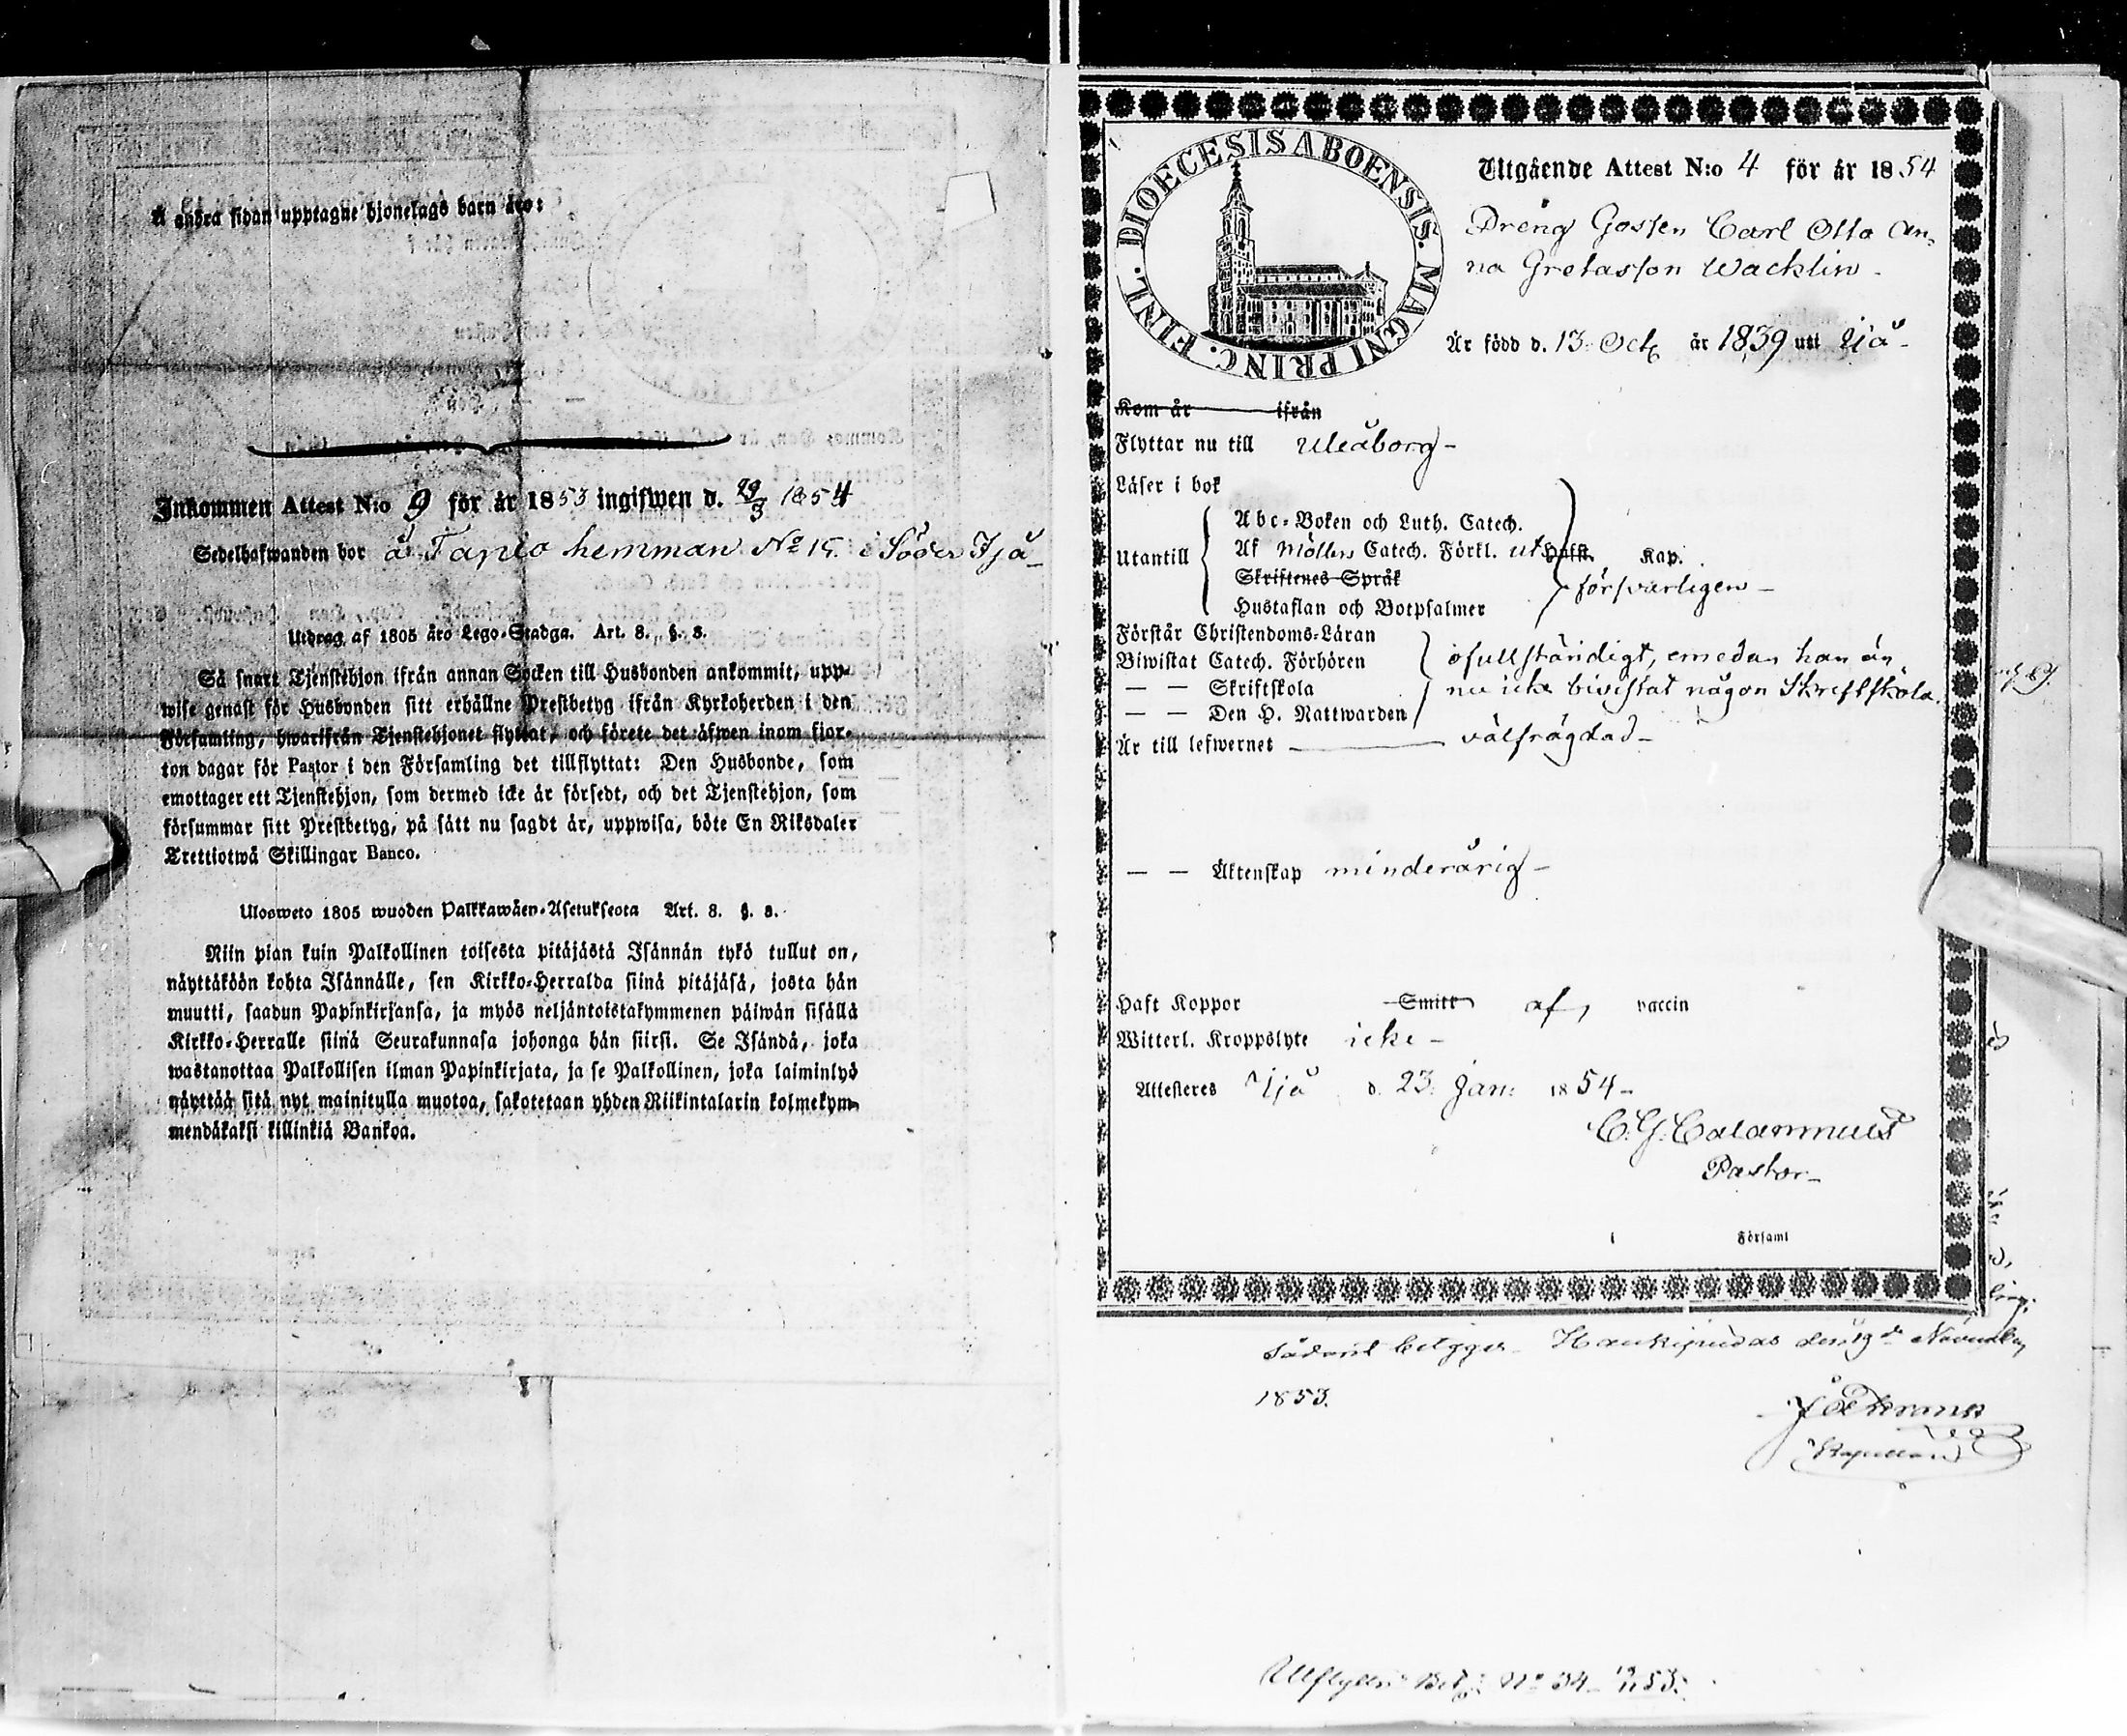 Å andra sidan upptagne hjonelags barn äro:
Inkommen Attest N:o 9 för år 1853 ingifwen d. 29/3 1854
Sedelhafwanden bor å Tapio hemman No 15. i Söder Ijå
Utdrag af 1805 års Lego-Stadga. Art. 8. §. 8.
Så snart Tjenstehjon ifrån annan Socken till Husbonden ankommit, upp-
wise genast för Husbonden sitt erhållne Prestbetyg ifrån Kyrkoherden i den
Församling, hwarifrån Tjenstehjonet flyttat, och förete det äfwen inom fjor-
ton dagar för Pastor i den Församling det tillflyttat: Den Husbonde, som
emottager ett Tjenstehjon, som dermed icke är försedt, och det Tjenstehjon, som
försummar sitt Prestbetyg, på sätt nu sagdt är, uppwisa, böte En Riksdaler
Trettiotwå Skillingar Banco.
Ulosweto 1805 wuoden Palkkawäen-Asetuksesta Art. 8. §. 8.
Niin pian kuin Palkollinen toisesta pitäjästä Isännän tykö tullut on,
näyttäköön kohta Isännälle, sen Kirkko-Herralda siinä pitäjäsä, josta hän
muutti, saadun Papinkirjansa, ja myös neljäntoistakymmenen päiwän sisällä
Kirkko-Herralle siinä Seurakunnasa johonga hän siirsi. Se Isändä, joka
wastanottaa Palkollisen ilman Papinkirjata, ja se Palkollinen, joka laiminlyö
näyttää sitä nyt mainitulla muotoa, sakotetaan yhden Riikintalarin kolmekym-
mendäkaksi killinkiä Bankoa.
DIOECESIS ABOENSIS. MAGNI PRINC. FINL.
Utgående Attest N:o 4 för år 1854
Dräng Gossen Carl Otto An-
na Gretasson Wacklin
Är född d. 13. Oct. år 1839 uti Ijå
Kom år ifrån
Flyttar nu till Uleåborg
Läser i bok
Utantill
Abc-Boken och Luth. Catech.
Af Möllers Catech. Förkl. ut Hufst. Kap.
Skriftenes Språk
försvarligen
Hustaflan och Botpsalmer
Förstår Christendoms-Läran
Biwistat Catech. Förhören ofullständigt, emedan han än
— — Skriftskola nu icke bivistat någon Skriftskola.
— — Den H. Nattwarden
Är till lefwernet välfrägdad
— — Äktenskap minderårig
Haft Koppor Smitt af vaccin
Witterl. Kroppslyte icke
Attesteres Ijå d. 23. Jan: 1854
C. G. Calamnius
Pastor
i Församl
Sådant betygger Haukipudas den 19de November
1853.
Kapellan
Utflyttn: Bet: No 34 19/11 53.